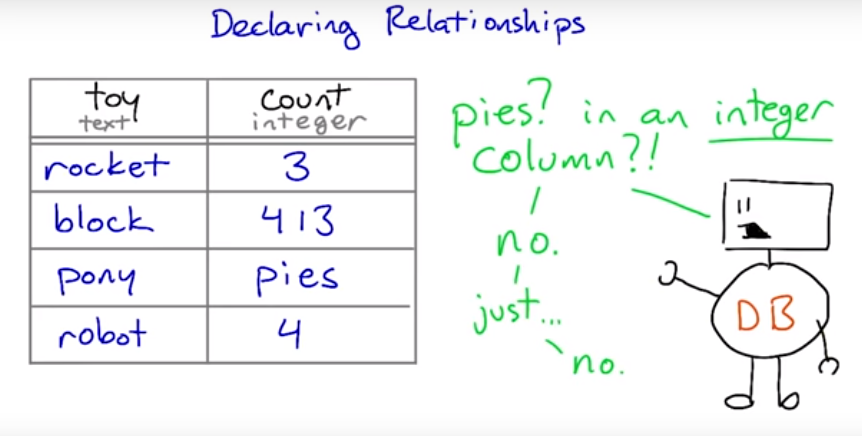 Declaring Relationships
toy count
text integer
rocket 3
block 413
pony pies
robot 4
pies? in an integer
column?!
no.
just...
no.
DB